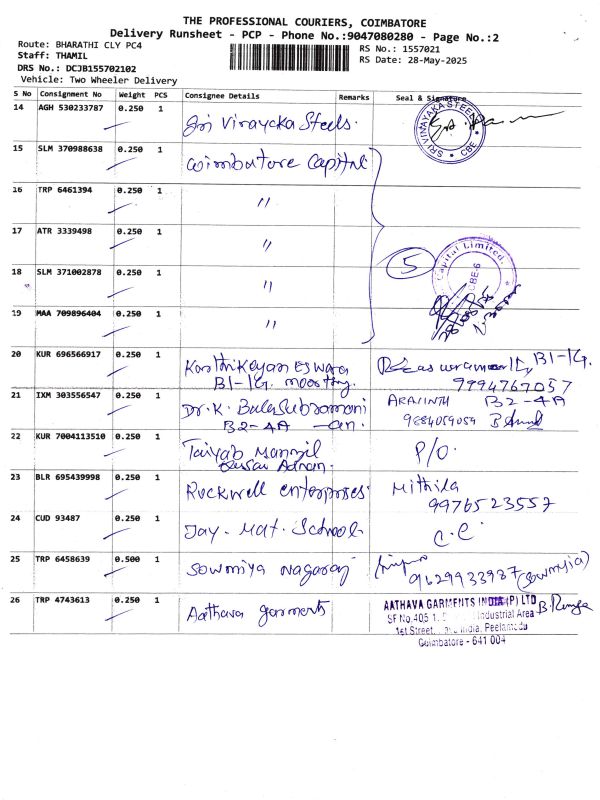 THE PROFESSIONAL COURIERS, COIMBATORE
Delivery Runsheet - PCP - Phone No.:9047080280 - Page No.:2
Route: BHARATHI CLY PC4
RS No.: 1557021
Staff: THAMIL
RS Date: 28-May-2025
DRS No.: DCJB155702102
Vehicle: Two Wheeler Delivery
S No Consignment No Weight PCS Consignee Details Remarks Seal & Signature
14 AGH 530233787 0.250 1 Sri Vinayaka Steels.
SRI VINAYAKA STEELS * CBE *
15 SLM 370988638 0.250 1 Coimbatore Capital
16 TRP 6461394 0.250 1 "
17 ATR 3339498 0.250 1 "
5
Capital Limited. CBE-6
18 SLM 371002878 0.250 1 "
19 MAA 709896404 0.250 1 "
20 KUR 696566917 0.250 1 Karthikeyan Eswara B1-1G.
B1-1G. moorthy. 9994767057
21 IXM 303556547 0.250 1 Dr.K. Balasubramani ARAVINTH B2-4A
B2-4A -an. 9884059059
22 KUR 7004113510 0.250 1 Taiyab Manzil P/O.
Adnan.
23 BLR 695439998 0.250 1 Rockwell enterprises Mithila
9976523557
24 CUD 93487 0.250 1 Jay. Mat. School C.C.
25 TRP 6458639 0.500 1 Sowmiya Nagaraj 9629933987 (Sowmyia)
26 TRP 4743613 0.250 1 Aathava garments
AATHAVA GARMENTS INDIA (P) LTD
SF No.405 1, Industrial Area
1st Street, India, Peelamedu
Coimbatore - 641 004